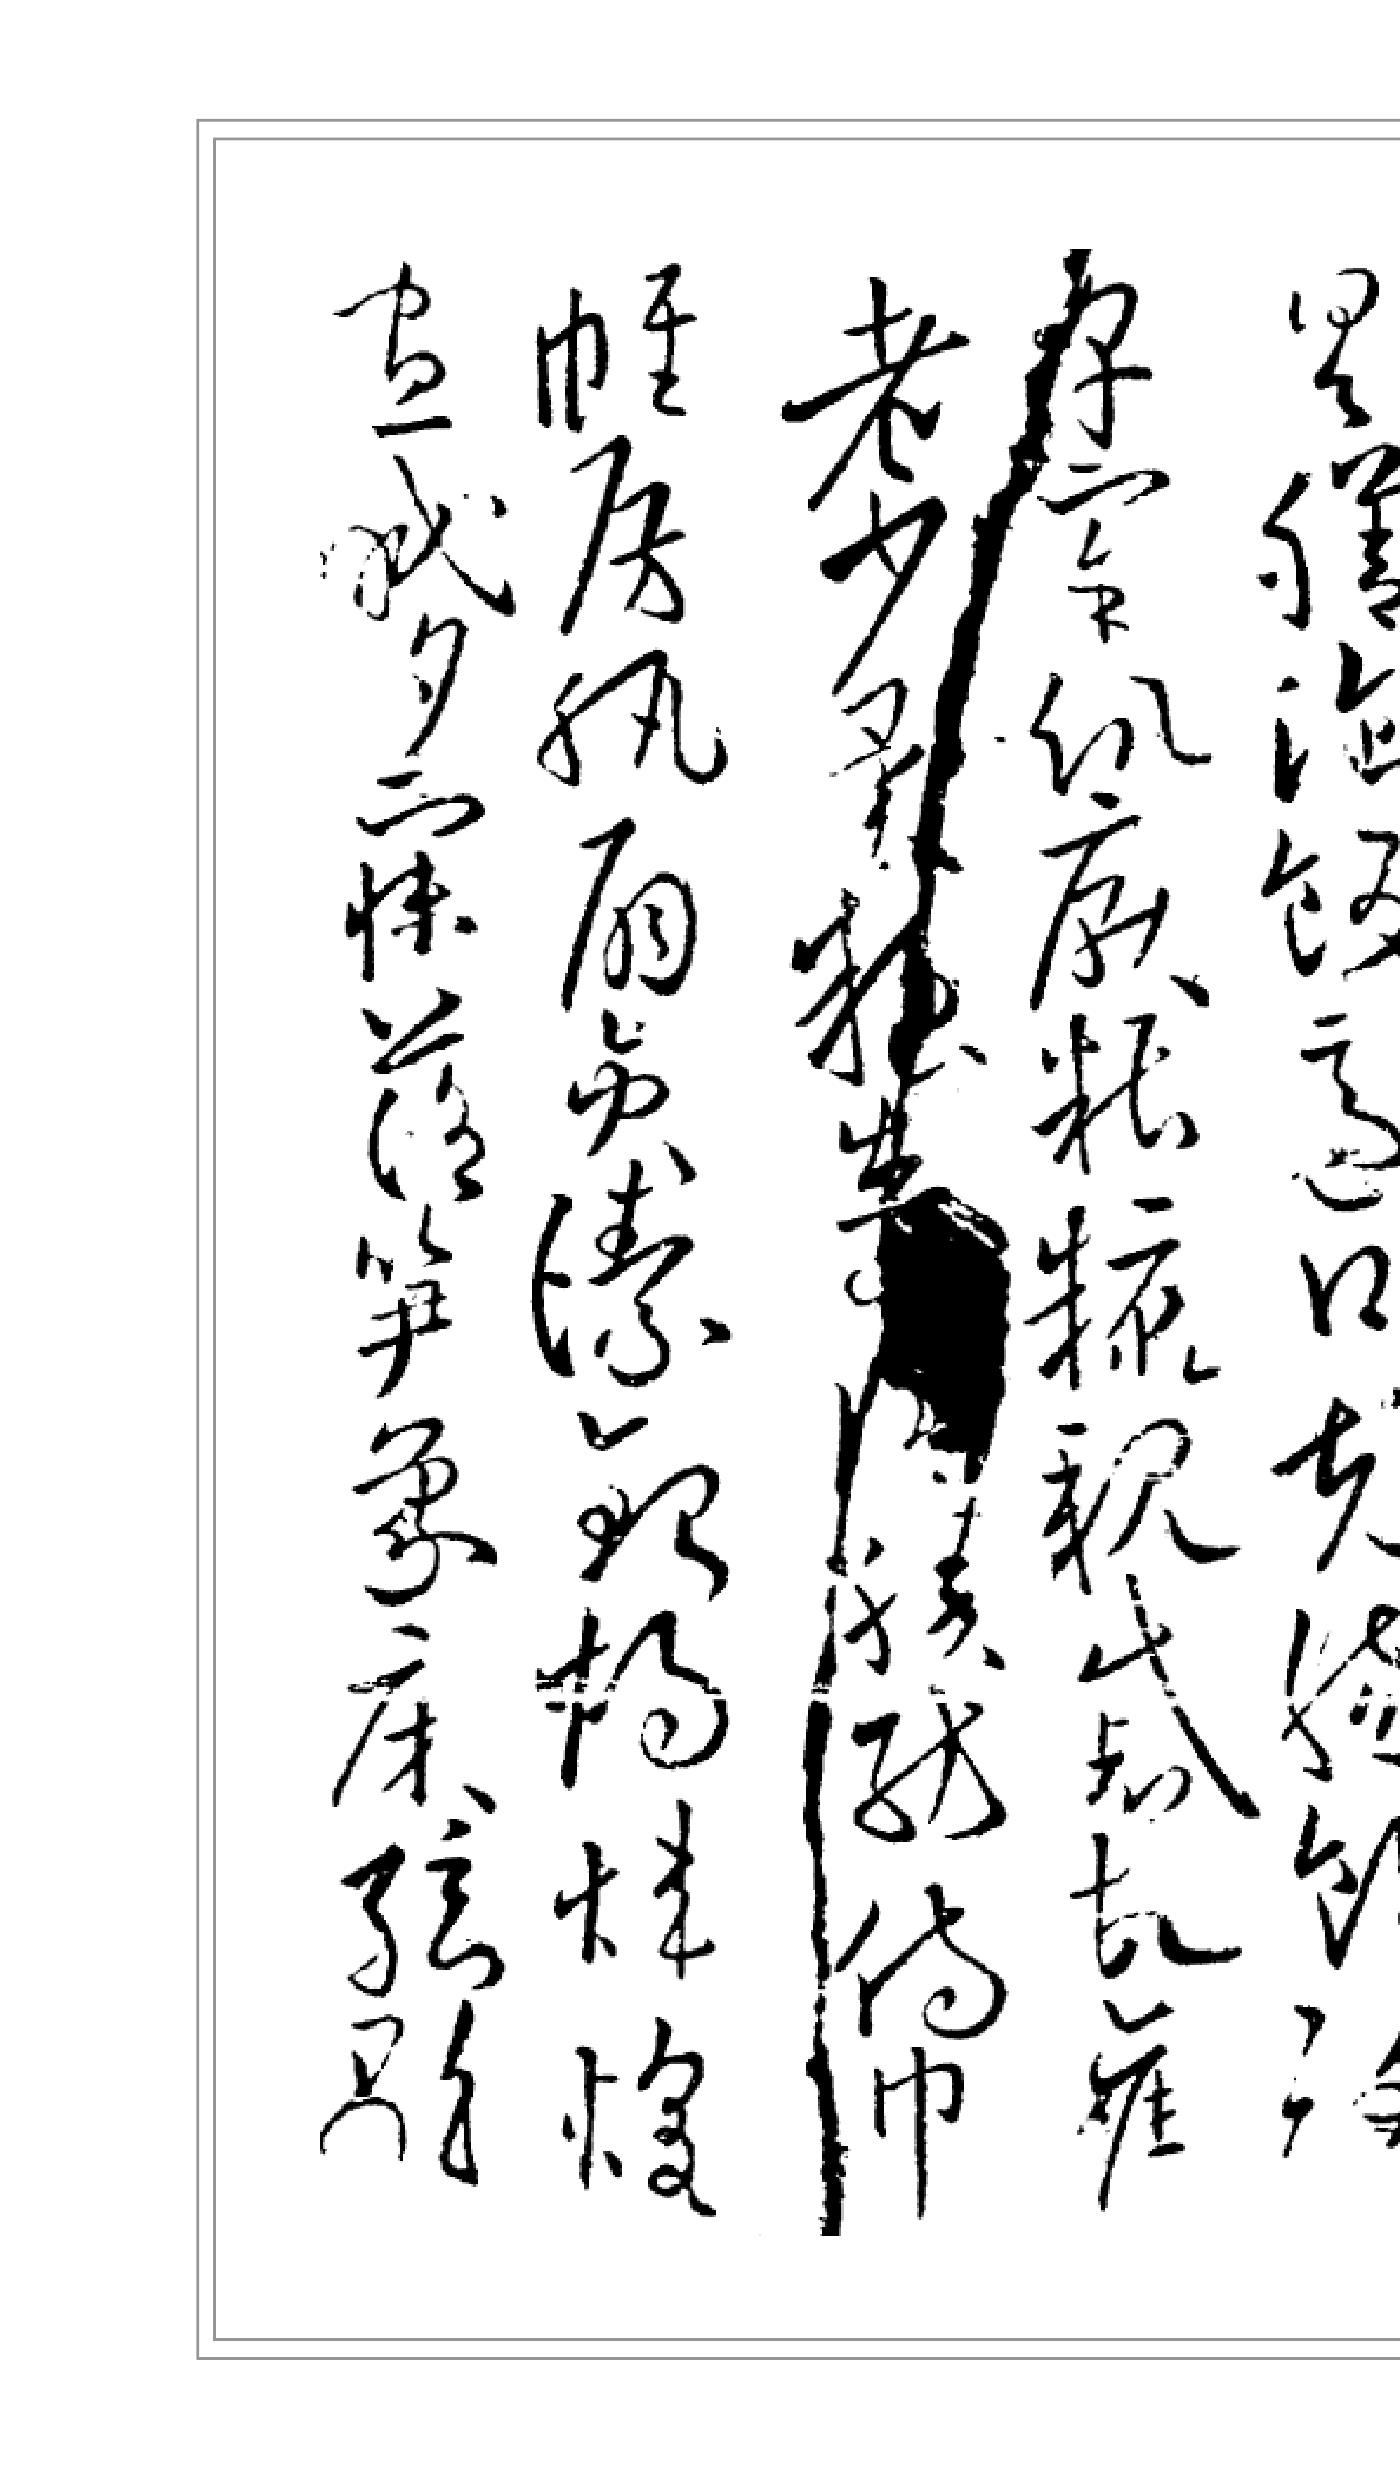 具膳飡飯適口充腸飽飫
烹宰飢厭糟糠親戚故舊
老少異糧妾績紡侍巾
帷房紈扇圓潔銀燭煒煌
晝眠夕寐藍笋象床弦歌